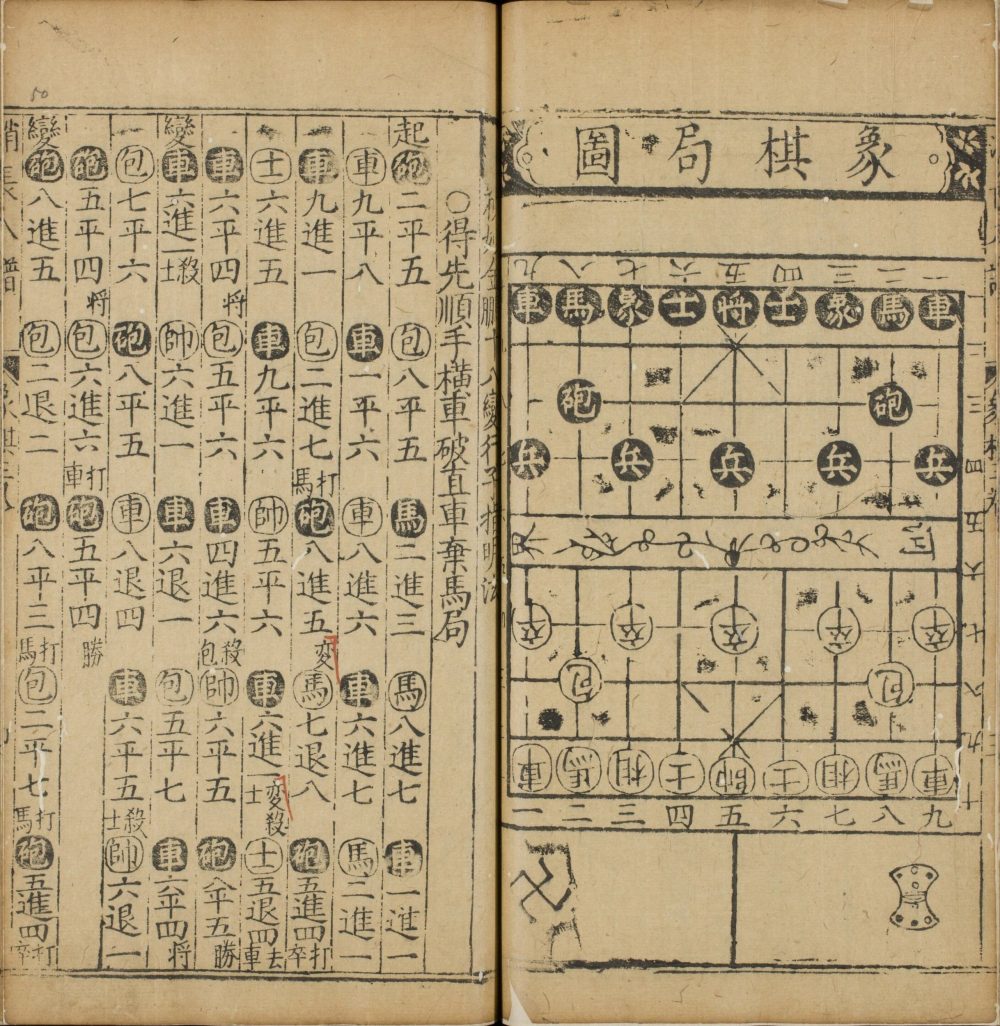 象棋局圖
一二三四五六七八九
車馬象士将士象馬車
砲砲
兵兵兵兵兵
卒卒卒卒卒
包包
車馬相士帥士相馬車
九八七六五四三二一
金鵬十八變行子指明法
○得先順手橫車破直車棄馬局
起砲二平五 包八平五 馬二進三 馬八進七 車一進一
車九平八 車一平六 車八進六 車六進七 馬二進一
車九進一 包二進七打馬 砲八進五変 馬七退八 砲五進四打卒
士六進五 車九平六 帥五平六 車六進一変殺士 士五退四去車
車六平四将 包五平六 車四進六殺包 帥六平五 砲八平五勝
變車六進一殺士 帥六進一 車六退一 包五平七 車六平四将
包七平六 砲八平五 車八退四 車六平五殺士 帥六退一
砲五平四将 包六進六打車 砲五平四勝
變砲八進五 包二退二 砲八平三打馬 包二平七打馬 砲五進四打卒
50